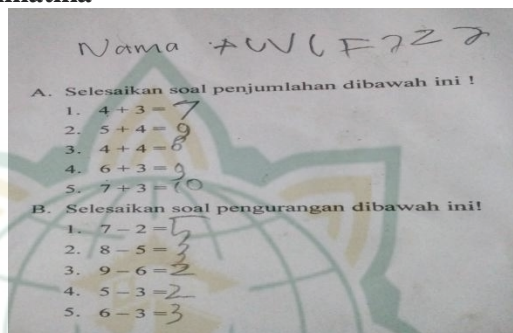 Nama
A. Selesaikan soal penjumlahan dibawah ini !
1. 4 + 3 = 7
2. 5 + 4 = 9
3. 4 + 4 = 8
4. 6 + 3 = 9
5. 7 + 3 = 10
B. Selesaikan soal pengurangan dibawah ini!
1. 7 – 2 = 5
2. 8 – 5 = 3
3. 9 – 6 = 2
4. 5 – 3 = 2
5. 6 – 3 = 3